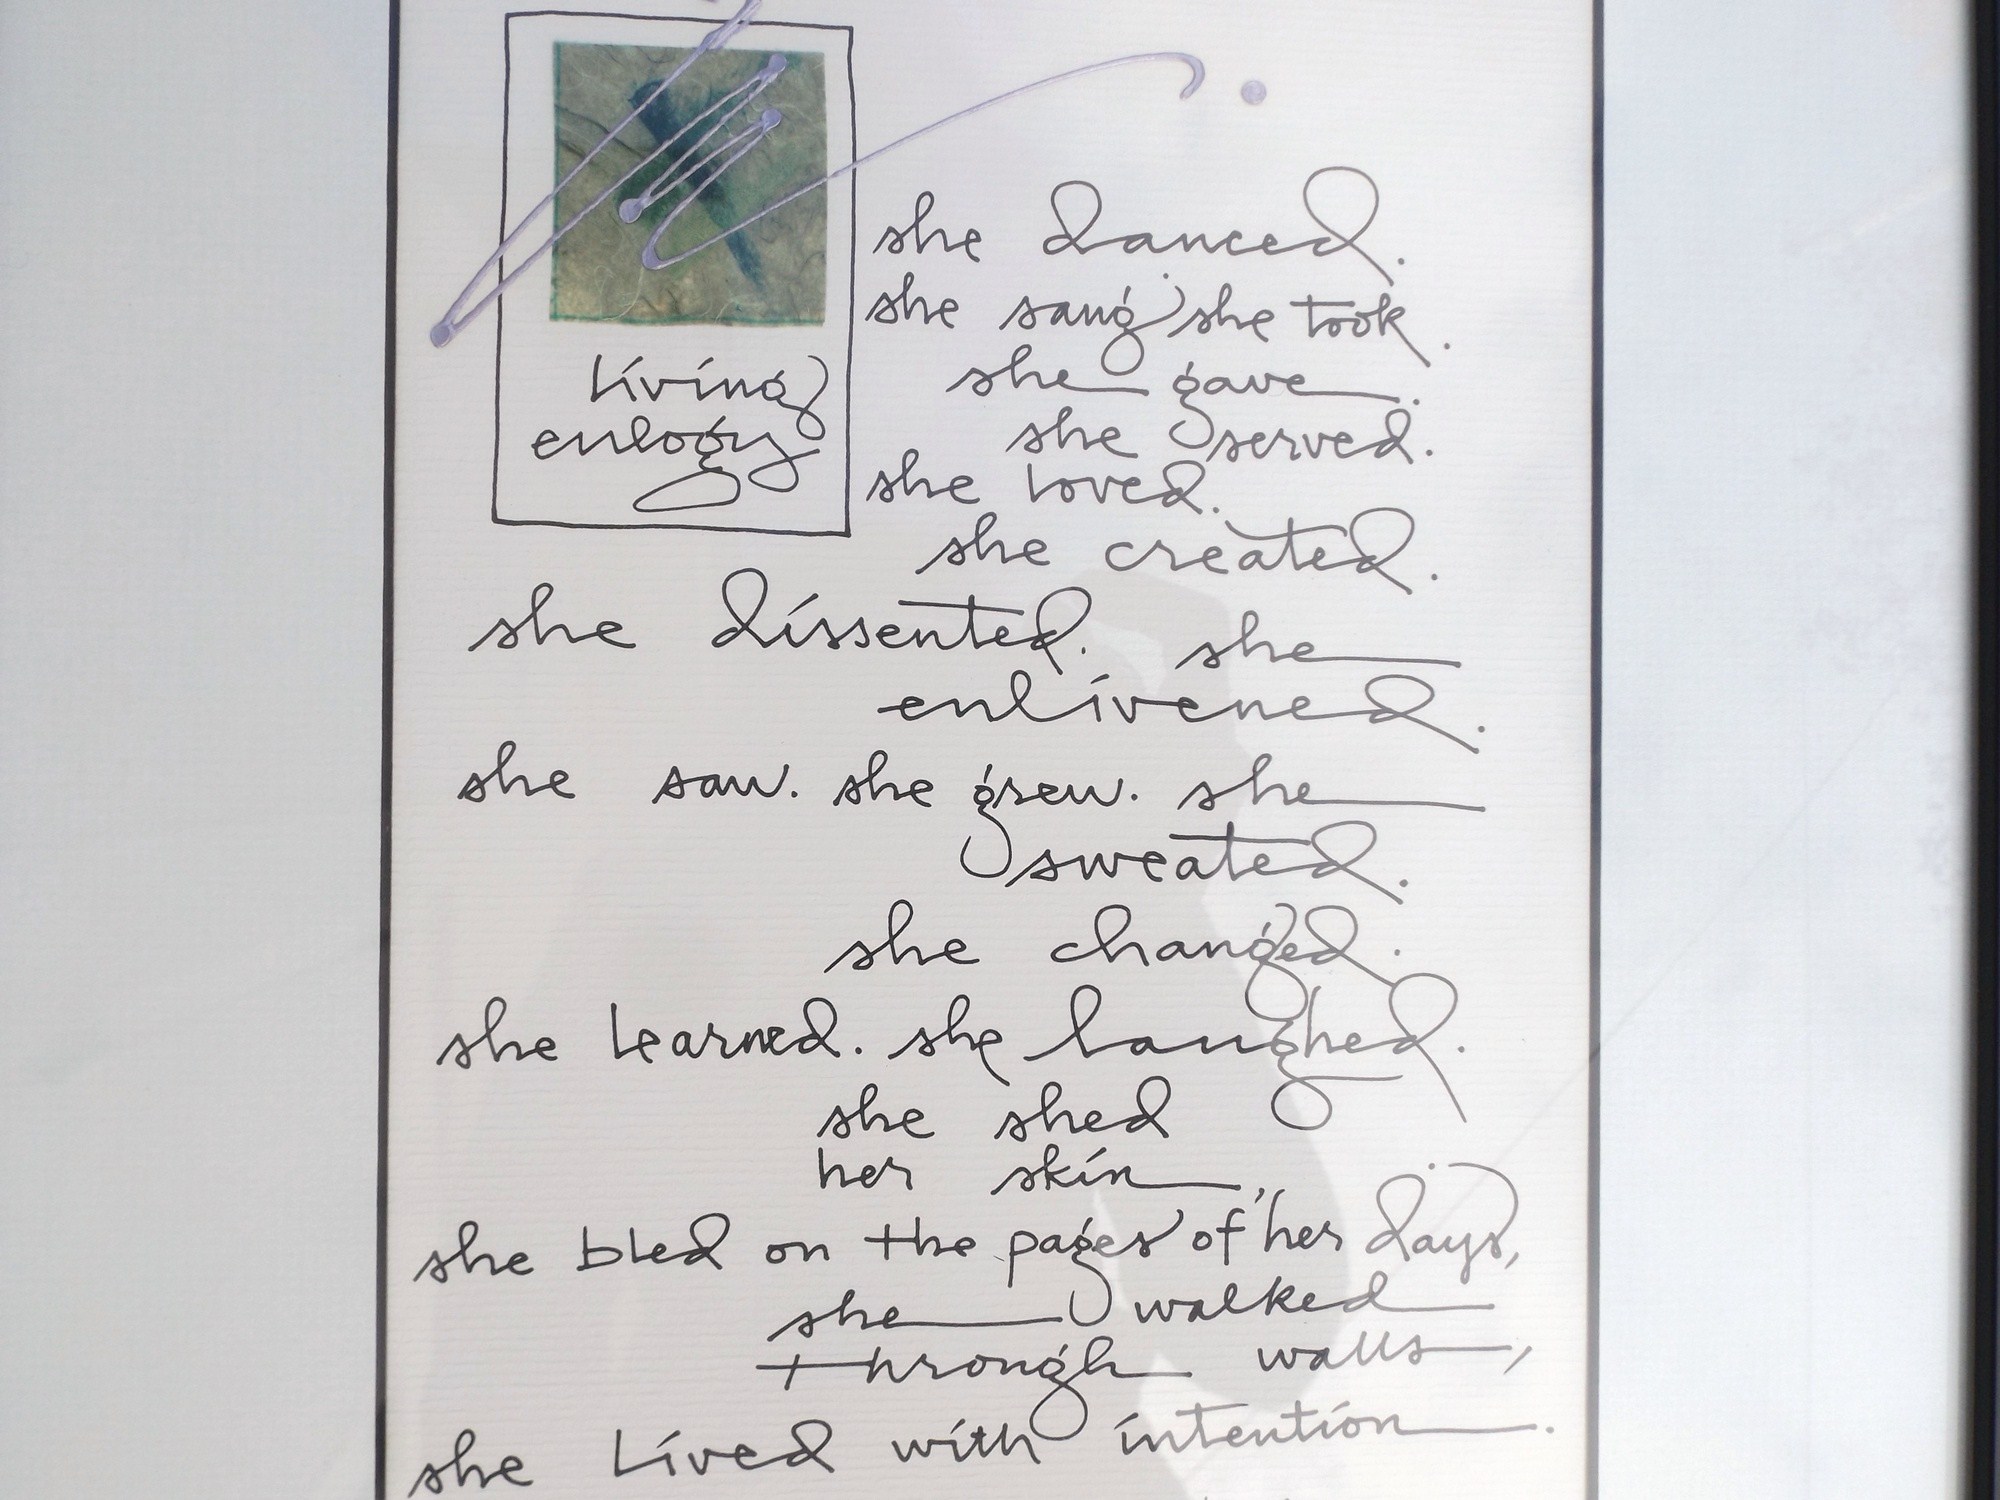 living
eulogy
she danced.
she sang. she took.
she gave.
she served.
she loved.
she created.
she dissented. she
enlivened.
she saw. she grew. she
sweated.
she changed.
she learned. she laughed.
she shed
her skin,
she bled on the pages of her days,
she walked
through walls,
she lived with intention.